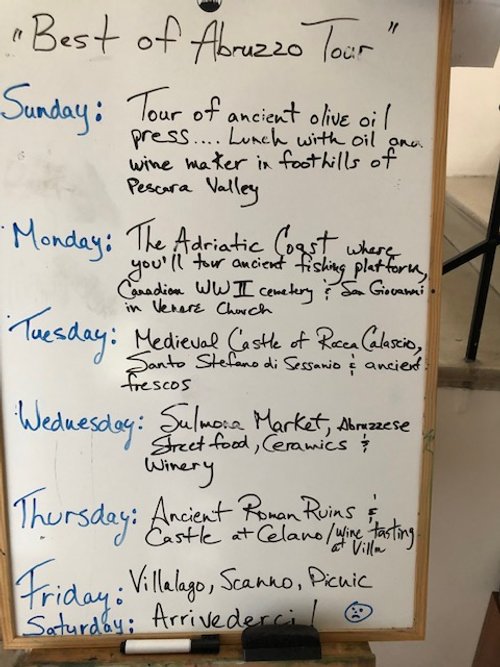 "Best of Abruzzo Tour"
Sunday: Tour of ancient olive oil
press.... Lunch with oil and
wine maker in foothills of
Pescara Valley
Monday: The Adriatic Coast where
you'll tour ancient fishing platform,
Canadian WW II cemetery & San Giovanni
in Venere Church
Tuesday: Medieval Castle of Rocca Calascio,
Santo Stefano di Sessanio & ancient
frescos
Wednesday: Sulmona Market, Abruzzese
Street food, Ceramics &
Winery
Thursday: Ancient Roman Ruins &
Castle at Celano/wine tasting
at Villa
Friday: Villalago, Scanno, Picnic
Saturday: Arrivederci!